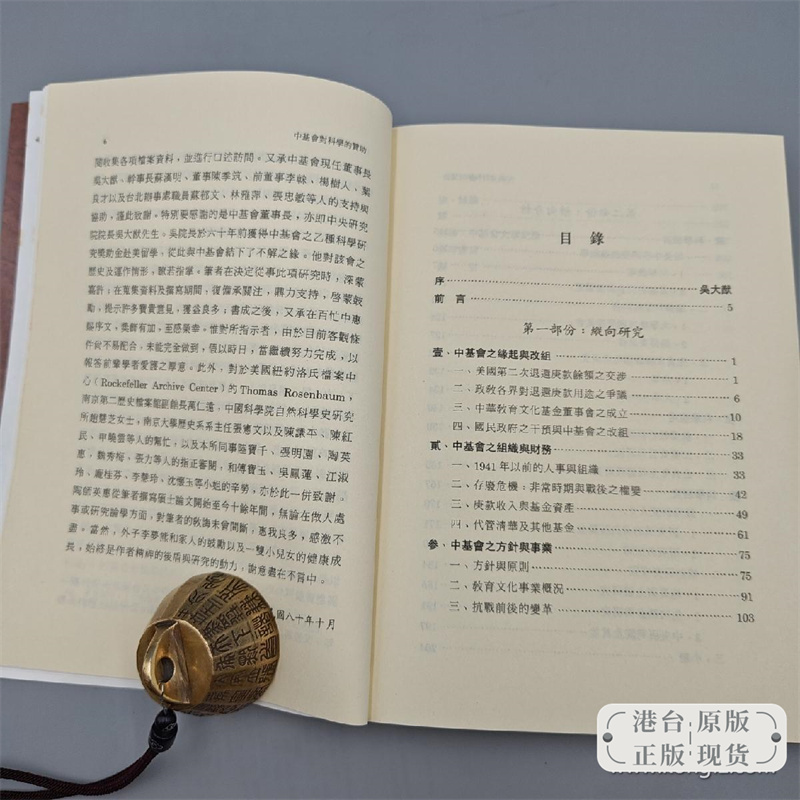 6
中基會對科學的贊助
閱收集各項檔案資料，並進行口述訪問。又承中基會現任董事長
吳大猷、幹事長蘇漢明、董事陳季筑、前董事李榦、楊樹人、葉
良才以及台北辦事處職員蘇郁文、林雅萍、張忠敏等人的支持與
協助，謹此致謝。特別要感謝的是中基會董事長，亦即中央研究
院院長吳大猷先生。吳院長於六十年前獲得中基會之乙種科學研
究獎助金赴美留學，從此與中基會結下了不解之緣。他對該會之
歷史及運作情形，瞭若指掌。筆者在決定從事此項研究時，深蒙
嘉許；在蒐集資料及撰寫期間，復備承關注，鼎力支持，啓蒙啟
點，提示許多寶貴意見，獲益良多；書成之後，又承在百忙中惠
賜序文，獎飾有加，至感榮幸。惟對所指示者，由於目前客觀條
件尚不易配合，未能完全做到，假以時日，當繼續努力完成，以
報答前輩學者愛護之厚意。此外，對於美國紐約洛氏檔案中
心(Rockefeller Archive Center)的Thomas Rosenbaum，
南京第二歷史檔案館副館長萬仁遠，中國科學院自然科學史研究
所趙慧芝女士，南京大學歷史系系主任張憲文以及陳謙平、陳紅
民、申曉雲等人的幫忙；以及本所同事區寶千、張明園、陶英
惠、魏秀梅、張力等人的指正審閱，和傅寶玉、吳鳳蓮、江淑
玲、龐桂芬、李慧玲、沈懷玉等小姐的辛勞，亦於此一併致謝。
陶師英惠從筆者撰寫碩士論文開始至今十餘年間，無論在做人處
事或研究論學方面，對筆者的教誨未曾間斷，惠我良多，感激不
盡。當然，外子李夢熊和家人的鼓勵以及一雙小兒女的健康成
長，始終是作者精神的後盾與研究的動力，謝意盡在不言中。
國八十年十月
目錄
序 吳大猷
前言 5
第一部份：縱向研究
壹、中基會之緣起與改組 1
一、美國第二次退還庚款餘額之交涉 1
二、政敎各界對退還庚款用途之爭議 6
三、中華敎育文化基金董事會之成立 10
四、國民政府之干預與中基會之改組 18
貳、中基會之組織與財務 33
一、1941年以前的人事與組織 33
二、存廢危機：非常時期與戰後之權變 42
三、庚款收入與基金資產 49
四、代管清華及其他基金 61
參、中基會之方針與事業 75
一、方針與原則 75
二、敎育文化事業概況 91
三、抗戰前後的變革 103
港台 原版
正版 现货